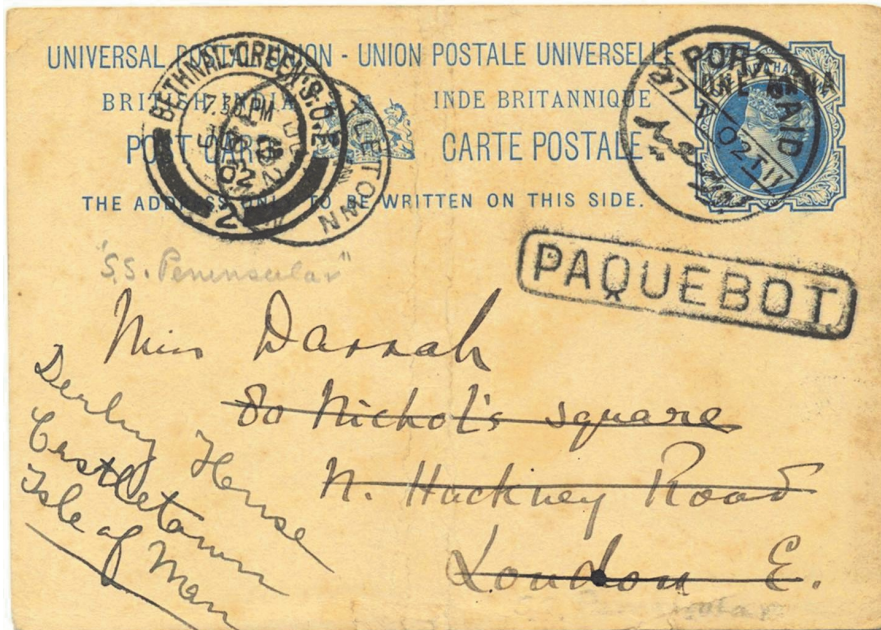 UNIVERSAL POSTAL UNION - UNION POSTALE UNIVERSELLE
BRITISH INDIA INDE BRITANNIQUE
POST CARD CARTE POSTALE
THE ADDRESS ONLY TO BE WRITTEN ON THIS SIDE.
ONE ANNA
BETHNAL-GREEN.S.O.E
7.30PM
02
2
TLETOWN
PORT SAID
27
02 T II
PAQUEBOT
"S.S. Peninsular"
Miss Darrah
80 Nichol's square
N. Hackney Road
London E.
Derby House
Castletown
Isle of Man